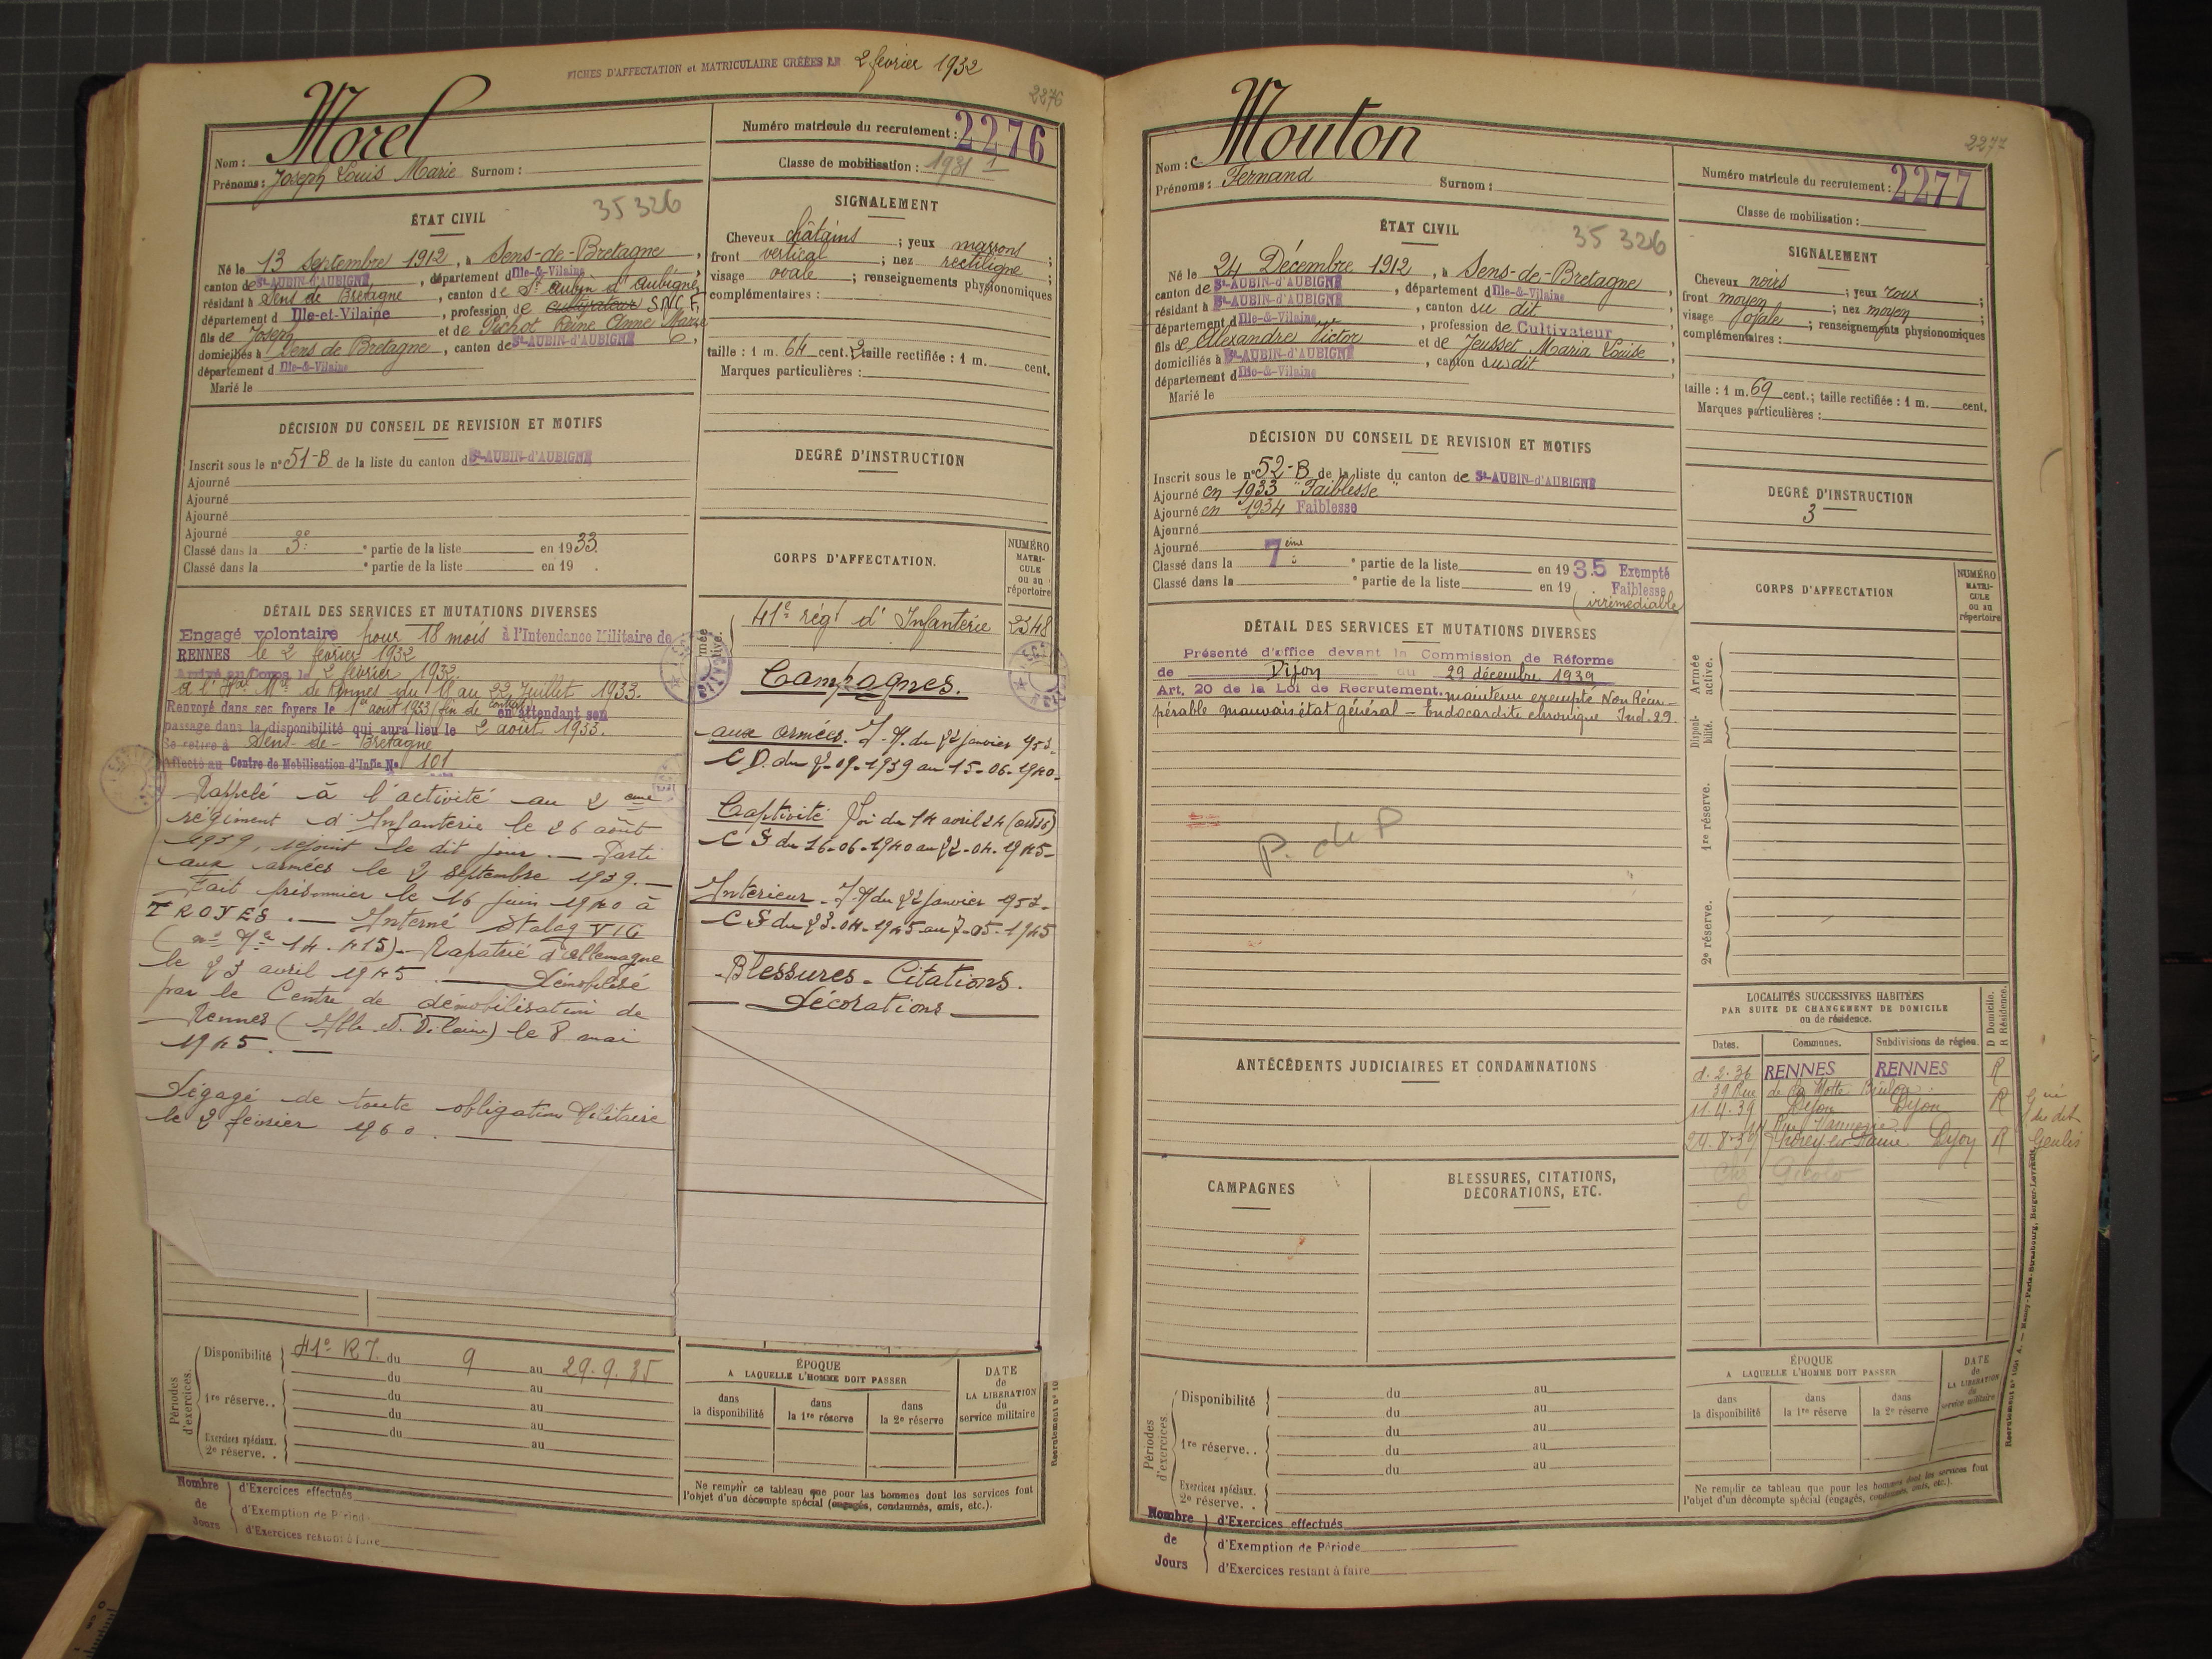 FICHES D'AFFECTATION et MATRICULAIRE CRÉÉES LE 2 février 1932
2276
Nom : Morel
Prénoms : Joseph Louis Marie Surnom :
Numéro matricule du recrutement : 2276
Classe de mobilisation : 1931 1
ÉTAT CIVIL
35 326
Né le 13 septembre 1912, à Sens-de-Bretagne,
canton de St-AUBIN-d'AUBIGNÉ, département d'Ille-&-Vilaine,
résidant à Sens de Bretagne, canton de St Aubin d'Aubigné,
département d Ille-et-Vilaine, profession de cultivateur S.N.C.F.
fils de Joseph et de Pichot Reine Anne Marie
domiciliés à Sens de Bretagne, canton de St-AUBIN-d'AUBIGNÉ,
département d Ille-&-Vilaine
Marié le
SIGNALEMENT
Cheveux châtains ; yeux marrons ;
front vertical ; nez rectiligne ;
visage ovale ; renseignements physionomiques
complémentaires :
taille : 1 m. 64 cent. ; taille rectifiée : 1 m. cent.
Marques particulières :
DÉCISION DU CONSEIL DE REVISION ET MOTIFS
Inscrit sous le n° 51-B de la liste du canton de St-AUBIN-d'AUBIGNÉ
Ajourné
Ajourné
Ajourné
Ajourné
Classé dans la 3e partie de la liste en 1933.
Classé dans la partie de la liste en 19 .
DEGRÉ D'INSTRUCTION
CORPS D'AFFECTATION.
NUMÉRO MATRI-CULE ou au répertoire
41e régt d'Infanterie 2348
DÉTAIL DES SERVICES ET MUTATIONS DIVERSES
Engagé volontaire pour 18 mois à l'Intendance Militaire de
RENNES le 2 février 1932
Arrivé au Corps le 2 février 1932.
à l'Hal Mre de Rennes du 11 au 22 Juillet 1933.
Renvoyé dans ses foyers le 1er août 1933 fin de contrat en attendant son
passage dans la disponibilité qui aura lieu le 2 août 1933.
Se retire à Sens-de-Bretagne
Affecté au Centre de Mobilisation d'Infie No 101
Rappelé à l'activité au 2 eme
régiment d'Infanterie le 26 août
1939, rejoint le dit jour. — Parti
aux armées le 2 septembre 1939. —
Fait prisonnier le 16 juin 1940 à
TROYES. — Interné Stalag VI G
14.415) - Rapatrié d'Allemagne
le 23 avril 1945. — Démobilisé
par le Centre de démobilisation de
Rennes (Ille et Vilaine) le 8 mai
1945. —
Dégagé de toute obligation Militaire
le 2 février 1960. —
Campagnes.
aux armées. du 22 janvier
C D. du 2-09-1939 au 15-06-1940-
Captivité Loi du 14 avril 24
C S du 16-06-1940 au 22-04-1945-
Intérieur - du 22 janvier
C S du 23-04-1945 au 7-05-1945
Blessures - Citations.
Décorations
Périodes d'exercices.
Disponibilité 41e R I. du 9 au 29.9.35
du au
1re réserve.. du au
du au
Exercices spéciaux. 2e réserve.. du au
au
ÉPOQUE
A LAQUELLE L'HOMME DOIT PASSER
dans la disponibilité
dans la 1re réserve
dans la 2e réserve
DATE de LA LIBÉRATION du service militaire
Ne remplir ce tableau que pour les hommes dont les services font
l'objet d'un décompte spécial (engagés, condamnés, omis, etc.).
Nombre de Jours
d'Exercices effectués
d'Exemption de Période
d'Exercices restant à faire
Recrutement n° 10
2277
Nom : Mouton
Prénoms : Fernand Surnom :
Numéro matricule du recrutement : 2277
Classe de mobilisation :
ÉTAT CIVIL
35 326
Né le 24 Décembre 1912, à Sens-de-Bretagne,
canton de St-AUBIN-d'AUBIGNÉ, département d'Ille-&-Vilaine,
résidant à St-AUBIN-d'AUBIGNÉ, canton du dit,
département d'Ille-&-Vilaine, profession de Cultivateur,
fils de Alexandre Victor et de Jeusset Maria Louise,
domiciliés à St-AUBIN-d'AUBIGNÉ, canton du dit,
département d'Ille-&-Vilaine
Marié le
SIGNALEMENT
Cheveux noirs ; yeux roux ;
front moyen ; nez moyen ;
visage ; renseignements physionomiques
complémentaires :
taille : 1 m. 69 cent. ; taille rectifiée : 1 m. cent.
Marques particulières :
DÉCISION DU CONSEIL DE REVISION ET MOTIFS
Inscrit sous le n° 52-B de la liste du canton de St-AUBIN-d'AUBIGNÉ
Ajourné en 1933 "Faiblesse"
Ajourné en 1934 Faiblesse
Ajourné
Ajourné
Classé dans la 7ème partie de la liste en 1935 Exempté
Classé dans la partie de la liste en 19 Faiblesse
(irrémédiable)
DEGRÉ D'INSTRUCTION
3
CORPS D'AFFECTATION
NUMÉRO MATRI-CULE ou au répertoire
Armée active.
Disponibilité.
1re réserve.
2e réserve.
DÉTAIL DES SERVICES ET MUTATIONS DIVERSES
Présenté d'office devant la Commission de Réforme
de Dijon du 29 décembre 1939
Art. 20 de la Loi de Recrutement. maintenu exempté Non Récu-
pérable mauvais état général - Endocardite chronique Ind. 29
P. de P
LOCALITÉS SUCCESSIVES HABITÉES
PAR SUITE DE CHANGEMENT DE DOMICILE
ou de résidence.
D Domicile. R Résidence.
Dates. Communes. Subdivisions de région.
d. 2.36 RENNES RENNES R
39 Rue de la Motte Brûlon
11.4.39 Dijon Dijon R
Rue Vannerie
24.8.39 Dijon R Genlis
ANTÉCÉDENTS JUDICIAIRES ET CONDAMNATIONS
CAMPAGNES
BLESSURES, CITATIONS,
DÉCORATIONS, ETC.
Périodes d'exercices.
Disponibilité du au
du au
1re réserve.. du au
du au
du au
Exercices spéciaux. 2e réserve..
ÉPOQUE
A LAQUELLE L'HOMME DOIT PASSER
dans la disponibilité
dans la 1re réserve
dans la 2e réserve
DATE de LA LIBÉRATION du service militaire
Ne remplir ce tableau que pour les hommes dont les services font
l'objet d'un décompte spécial (engagés, condamnés, omis, etc.).
Nombre de Jours
d'Exercices effectués
d'Exemption de Période
d'Exercices restant à faire
Nancy-Paris-Strasbourg, Berger-Levrault